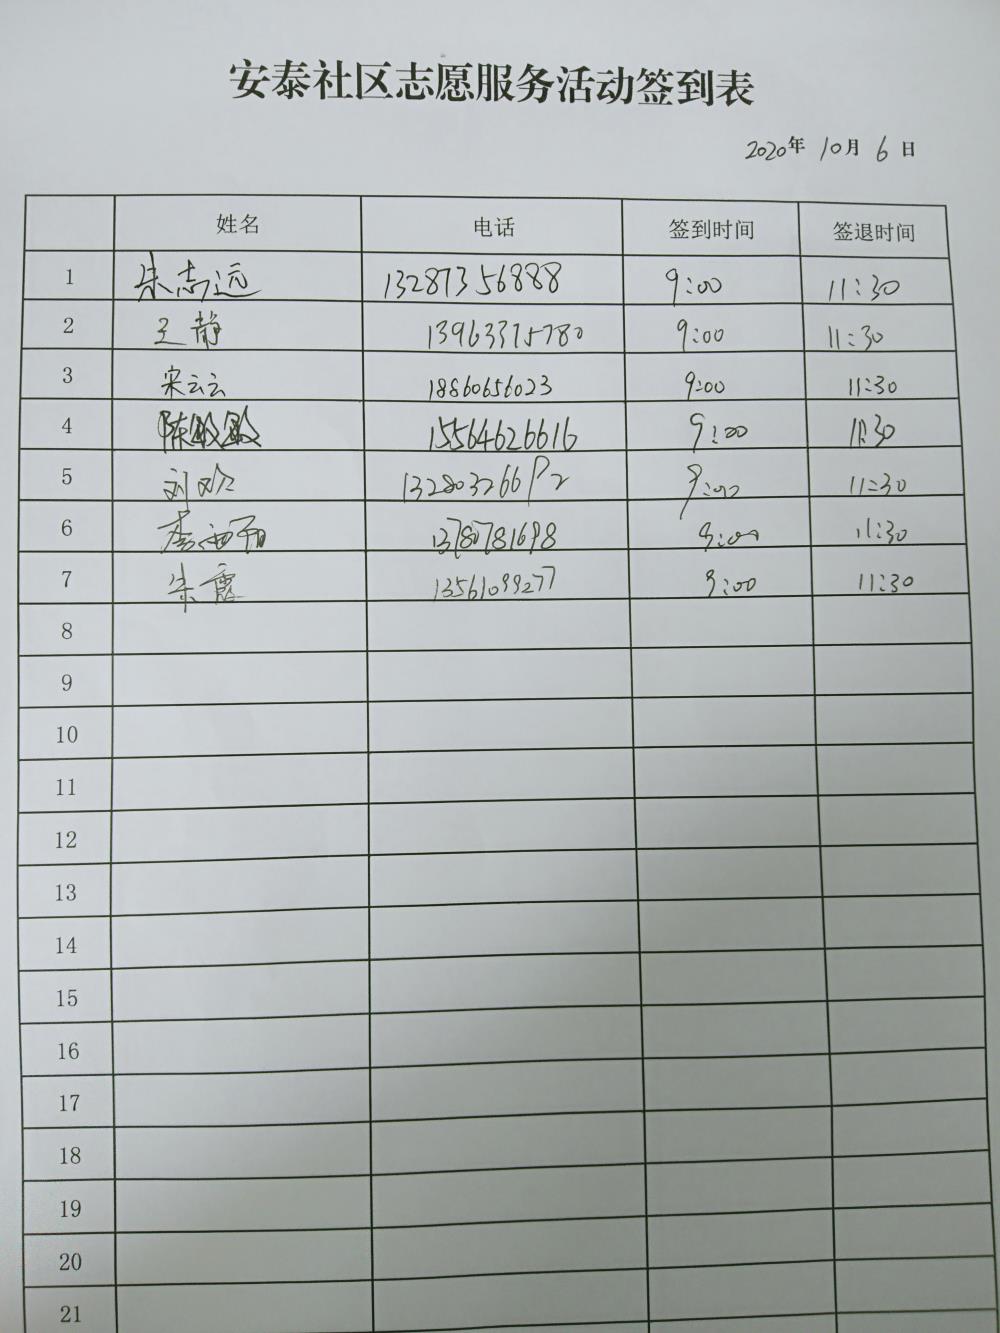 安泰社区志愿服务活动签到表
2020年 10月 6 日
姓名 电话 签到时间 签退时间
1 朱志远 13287356888 9:00 11:30
2 王静 13963375780 9:00 11:30
3 宋云云 18860656023 9:00 11:30
4 陈毁毁 15564626616 9:00 11:30
5 刘欢 9:00 11:30
6 13780781698 9:00 11:30
7 朱霞 13561099277 9:00 11:30
8
9
10
11
12
13
14
15
16
17
18
19
20
21